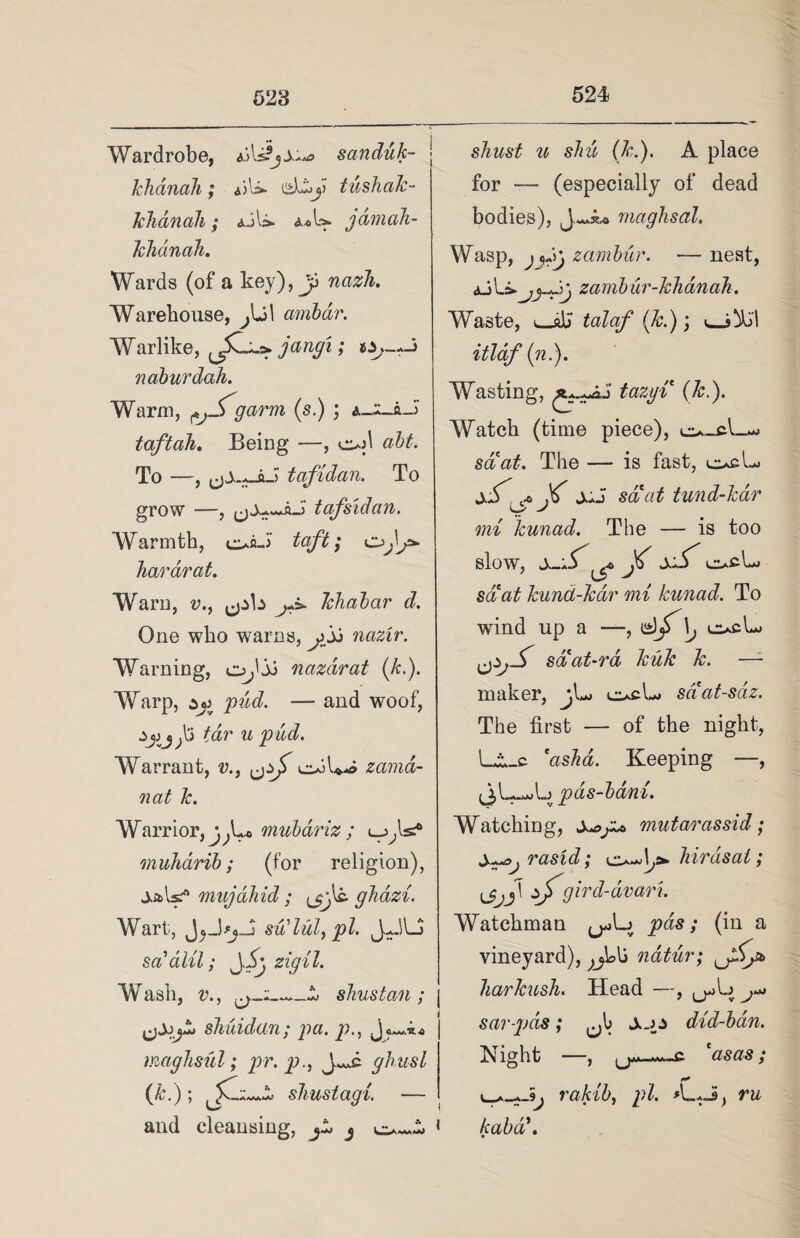 523
Wardrobe, صندوقخانه sandúk-
khánah; توشك خانه túshak-
khánah; جامه خانه jámah-
khánah.
Wards (of a key), نژ nazh.
Warehouse, انبار ambár.
Warlike, جنگی jangí; نبرده
naburdah.
Warm, گرم garm (s.); تفته
taftah. Being —, ابت abt.
To —, تفیدن tafídan. To
grow —, تفسیدن tafsídan.
Warmth, تفت taft; حرارت
harárat.
Warn, v., خبر دادن khabar d.
One who warns, نذیر nazír.
Warning, نذارت nazárat (k.).
Warp, پود púd. — and woof,
تار و پود tár u púd.
Warrant, v., ضمانت کردن zamá-
nat k.
Warrior, مبارز mubáriz; محارب
muhárib; (for religion),
مجاهد mujáhid; غازی ghází.
Wart, ثوءلول sú'lúl, pl. ثالیل
sa'álíl; زگیل zigíl.
Wash, v., شستن shustan;
شوئیدن shúídan; pa. p., مغسول
maghsúl; pr. p., غسل ghusl
(k.); شستگی shustagí. —
and cleansing, شست و شو
524
shust u shú (k.). A place
for — (especially of dead
bodies), مغسل maghsal.
Wasp, زنبور zambúr. — nest,
زنبورخانه zambúr-khánah.
Waste, تلف talaf (k.); اتلاف
itláf (n.).
Wasting, تضییع tazyi‘ (k.).
Watch (time piece), ساعت
sá‘at. The — is fast, ساعت
تند کار می کند sá‘at tund-kár
mí kunad. The — is too
slow, ساعت کند کار می کند
sá‘at kund-kár mí kunad. To
wind up a —, ساعت را کوك
کردن sá‘at-rá kúk k. —
maker, ساعت ساز sá‘at-sáz.
The first — of the night,
عشا ‘ashá. Keeping —,
پاسبانی pás-bání.
Watching, مترصد mutarassid;
رصید rasíd; حراست hirásat;
گرد آوری gird-ávarí.
Watchman پاس pás; (in a
vineyard), ناطور nátúr; هرکش
harkush. Head —, سر پاس
sar-pás; دید بان díd-bán.
Night —, عسس ‘asas;
رقیب rakíb, pl. رقباء ru
kabá’.